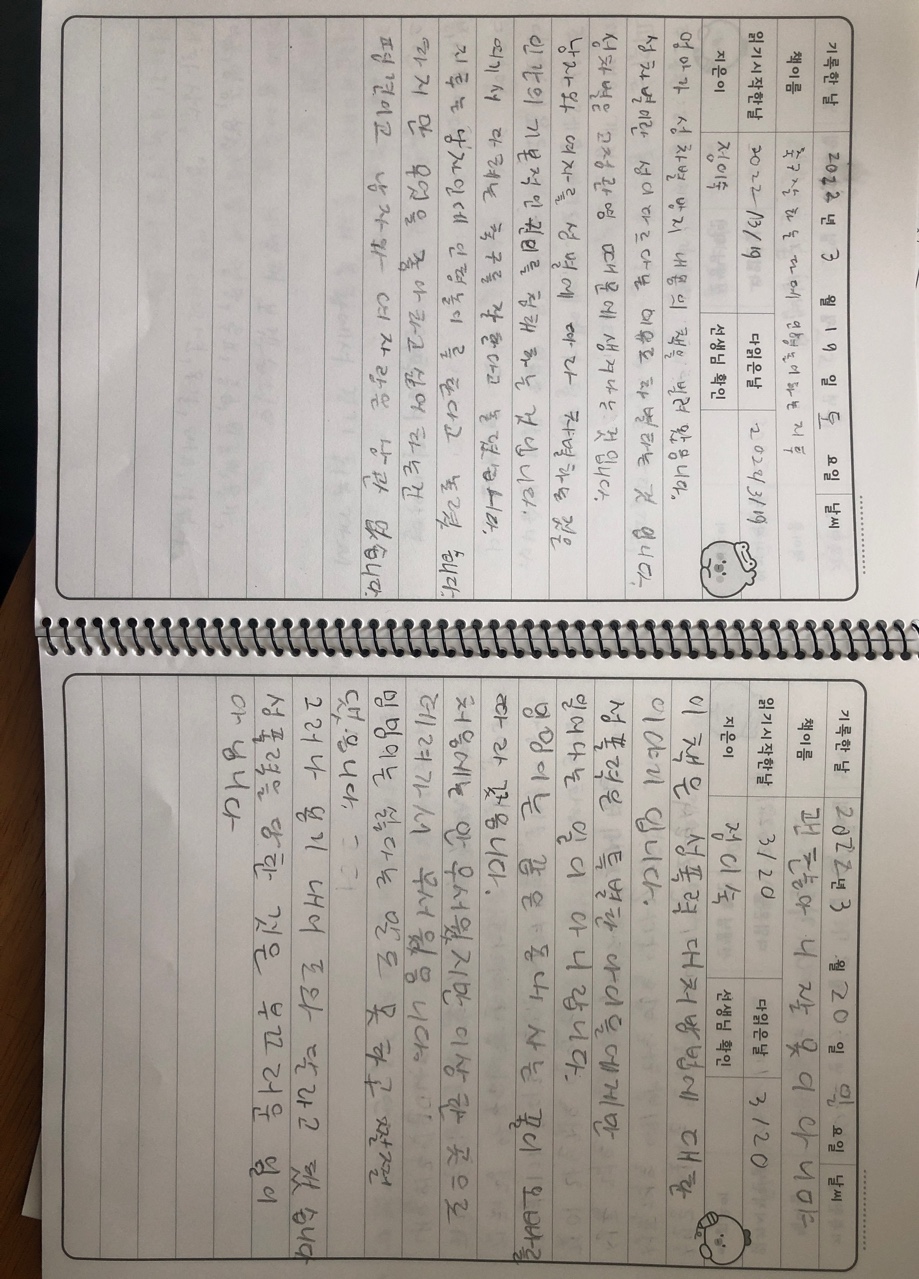 기록한 날 2022 년 3 월 19 일 토 요일 날씨
책이름 축구잘하는다혜 인형놀이하는지투
읽기시작한날 2022/3/19 다읽은날 2022/3/19
지은이 정이숙 선생님 확인
엄마가 성차별 방지 내용의 책을 빌려 왔읍니다.
성차별이란 성이다르다는 이유로 차별하는 것 입니다.
성차별은 고정관영 때문에 생겨나는 것입니다.
남자와 여자를 성별에 따라 차별하는 것은
인간의 기본적인 권리를 침해 하는 것 입니다.
여기서 다혜는 축구를 잘한다고 놀렸습니다.
지투는 남자인데 인형놀이 를 한다고 놀렸 습니다.
하지 만 무엇을 좋아하고 싫어 하는건
편견이고 남자와 여자랑은 상관 없습니다.
기록한 날 2022년 3 월 20 일 일 요일 날씨
책이름 괜찬아 니 잘 못 이 아 니야
읽기시작한날 3/20 다읽은날 3/20
지은이 정이숙 선생님 확인
이 책은 성폭력 대처방법에 대한
이야기 입니다.
성폭력은 특별한 아이들에게만
일어나는 일이 아니랍니다.
밈밈이는 같은 동내 사는 꿀이 오빠를
따라 갔읍니다.
처음에는 안 무서웠지만 이상 한 곳으로
데려가서 무서웠읍니다.
밈밈이는 싫다는 말도 못 하고 쩔쩔
댔읍니다.
그러나 용기 내어 도와 달라고 했 습니다
성폭력을 당한 것은 부끄러운 일이
아닙니다